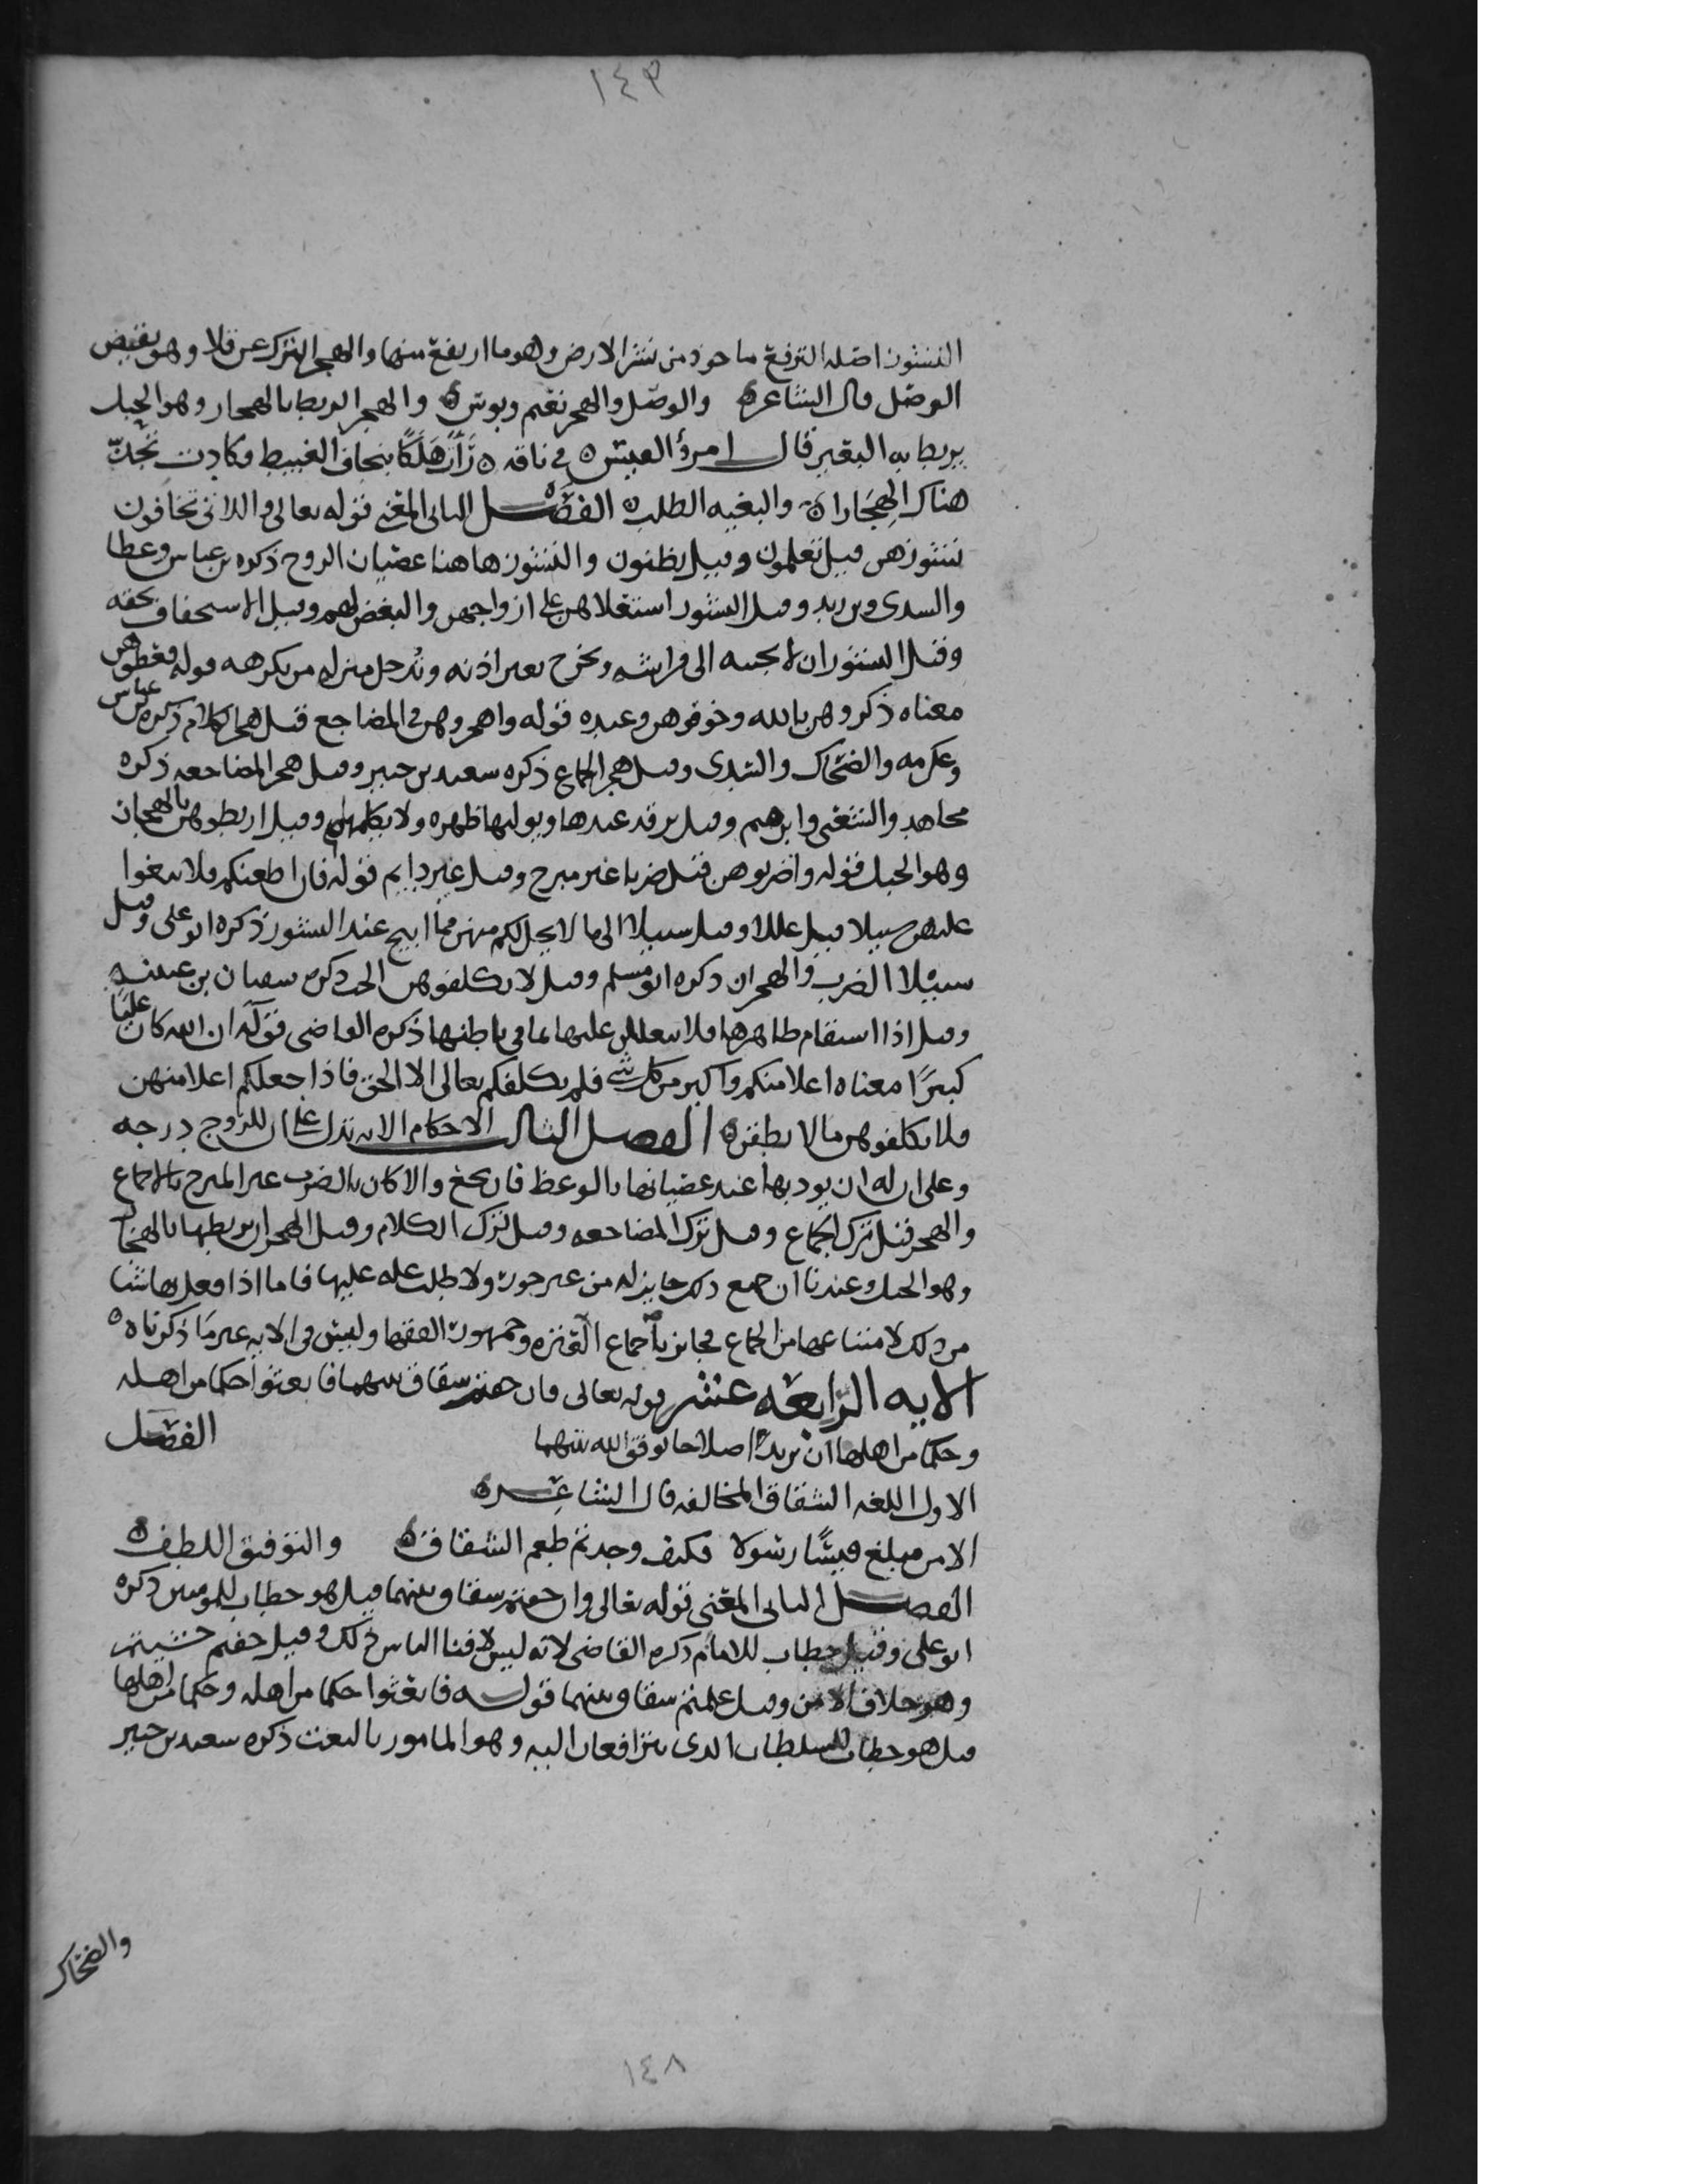 ١٤٣
النشوز اصله الترفع ماخوذ من نشز الارض وهو ما ارتفع منها والهجر الترك عن قلا وهو نقيض
الوصل قال الشاعر ه والوصل والهجر نعيم وبوس ه والهجر الربط بالهجار وهو الحبل
يربط به البعير قال امرؤ القيس ه في ناقه ه هلكا بنجاف الغبيط وكادت تجد
هناك الهجارا ه والبغيه الطلب ه الفصل الثاني المعنى قوله تعالى واللاتي تخافون
نشوزهن قيل تعلمون وقيل يظنون والنشوز هاهنا عصيان الزوج ذكره بن عباس وعطا
والسدي وبن زيد وقيل النشوز استعلاهن على ازواجهن والبغض لهم وقيل الاستخفاف بحقه
وقيل النشوز ان لا تجيبه الى فراشه وتخرج بغير اذنه وتدخل منزله من يكرهه قوله فعظوهن
معناه ذكروهن بالله وخوفوهن وعيده قوله واهجروهن في المضاجع قيل هجر الكلام ذكره بن عباس
وعكرمه والضحاك والسدي وقيل هجر الجماع ذكره سعيد بن جبير وقيل هجر المضاجعه ذكره
مجاهد والشعبي وابرهيم وقيل يرقد عندها ويوليها ظهره ولا يكلمها وقيل اربطوهن بالهجار
وهو الحبل قوله واضربوهن قيل ضربا غير مبرح وقيل غير دايم قوله فان اطعنكم فلا تبغوا
عليهن سبيلا قيل عللا وقيل سبيلا الى ما لا يحل لكم منهن مما ابيح عند النشوز ذكره ابو على وقيل
سبيلا الضرب والهجران ذكره ابو مسلم وقيل لا تكلفوهن الحب ذكره سفيان بن عيينه
وقيل اذا استقام ظاهرها فلا تعلل عليها بما في باطنها ذكره القاضي قوله ان الله كان عليا
كبيرا معناه اعلا منكم واكبر من كل شي فلم يكلفكم تعالى الا الحق فاذا جعلكم اعلا منهن
فلا تكلفوهن مالا يطقن ه الفصل الثالث الاحكام الايه تدل على ان للزوج درجه
وعلى ان له ان يودبها عند عصيانها بالوعظ فان نجع والا كان بالضرب غير المبرح بالاجماع
والهجر قيل ترك الجماع وقيل ترك المضاجعه وقيل ترك الكلام وقيل الهجر ان يربطها بالهجار
وهو الحبل وعندنا ان جميع ذلك جايز له من غير جور ولا طلب عله عليها فاما اذا فعل بها شيا
من ذلك لامتناعها من الجماع فجايز باجماع العتره وجمهور الفقها وليس في الايه غير ما ذكرناه ه
الايه الرابعه عشر قوله تعالى فان خفتم شقاق بينهما فابعثوا حكما من اهله
وحكما من اهلها ان يريدا اصلاحا يوفق الله بينهما الفصل
الاول اللغه الشقاق المخالفه قال الشاعر ه
الا من مبلغ قيسا رسولا فكيف وجدتم طعم الشقاق ه والتوفيق اللطف ه
الفصل الثاني المعنى قوله تعالى وان خفتم شقاق بينهما قيل هو خطاب للمومنين ذكره
ابو على وقيل خطاب للامام ذكره القاضي لانه ليس لافنا الناس ذلك وقيل خفتم خشيتم
وهو خلاف الامن وقيل علمتم شقاق بينهما قوله فابعثوا حكما من اهله وحكما من اهلها
قيل هو خطاب للسلطان الذي يترافعان اليه وهو المامور بالبعث ذكره سعيد بن جبير
والضحاك
١٤٨